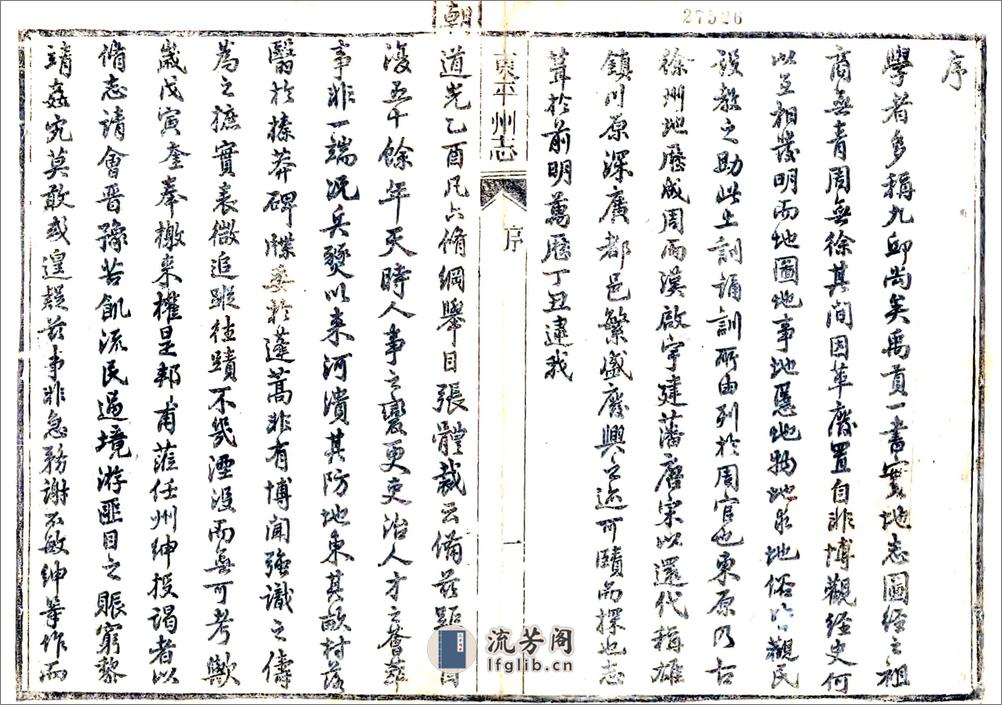 27526
序
學者多稱九邱尚矣禹貢一書實地志圖經之祖
商無青周無徐其間因革廢置自非博觀經史何
以互相發明而地圖地事地慝地物地求地俗皆觀民
設教之助此土訓誦訓所由列於周官也東原乃古
徐州地歷成周兩漢啟宇建藩唐宋以還代稱雄
鎮川原深廣都邑繁盛廢興之迹可賾而探也志
葺於前明萬曆丁丑逮我
東平州志 序 一
朝
道光乙酉凡六脩綱舉目張體裁云備茲距酉
復五十餘年天時人事之變更吏治人才之薈萃
事非一端況兵燹以來河潰其防地束其畝村落
翳於榛莽碑牒委於蓬蒿非有博聞強識之儔
為之摭實表微追蹤往蹟不幾湮沒而無可考歟
歲戊寅奎奉檄來權是邦甫蒞任州紳投謁者以
脩志請會晉豫苦飢流民過境游匪目之賑窮黎
靖姦宄莫敢或遑茲事非急務謝不敏紳等作而
流芳阁
lfglib.cn